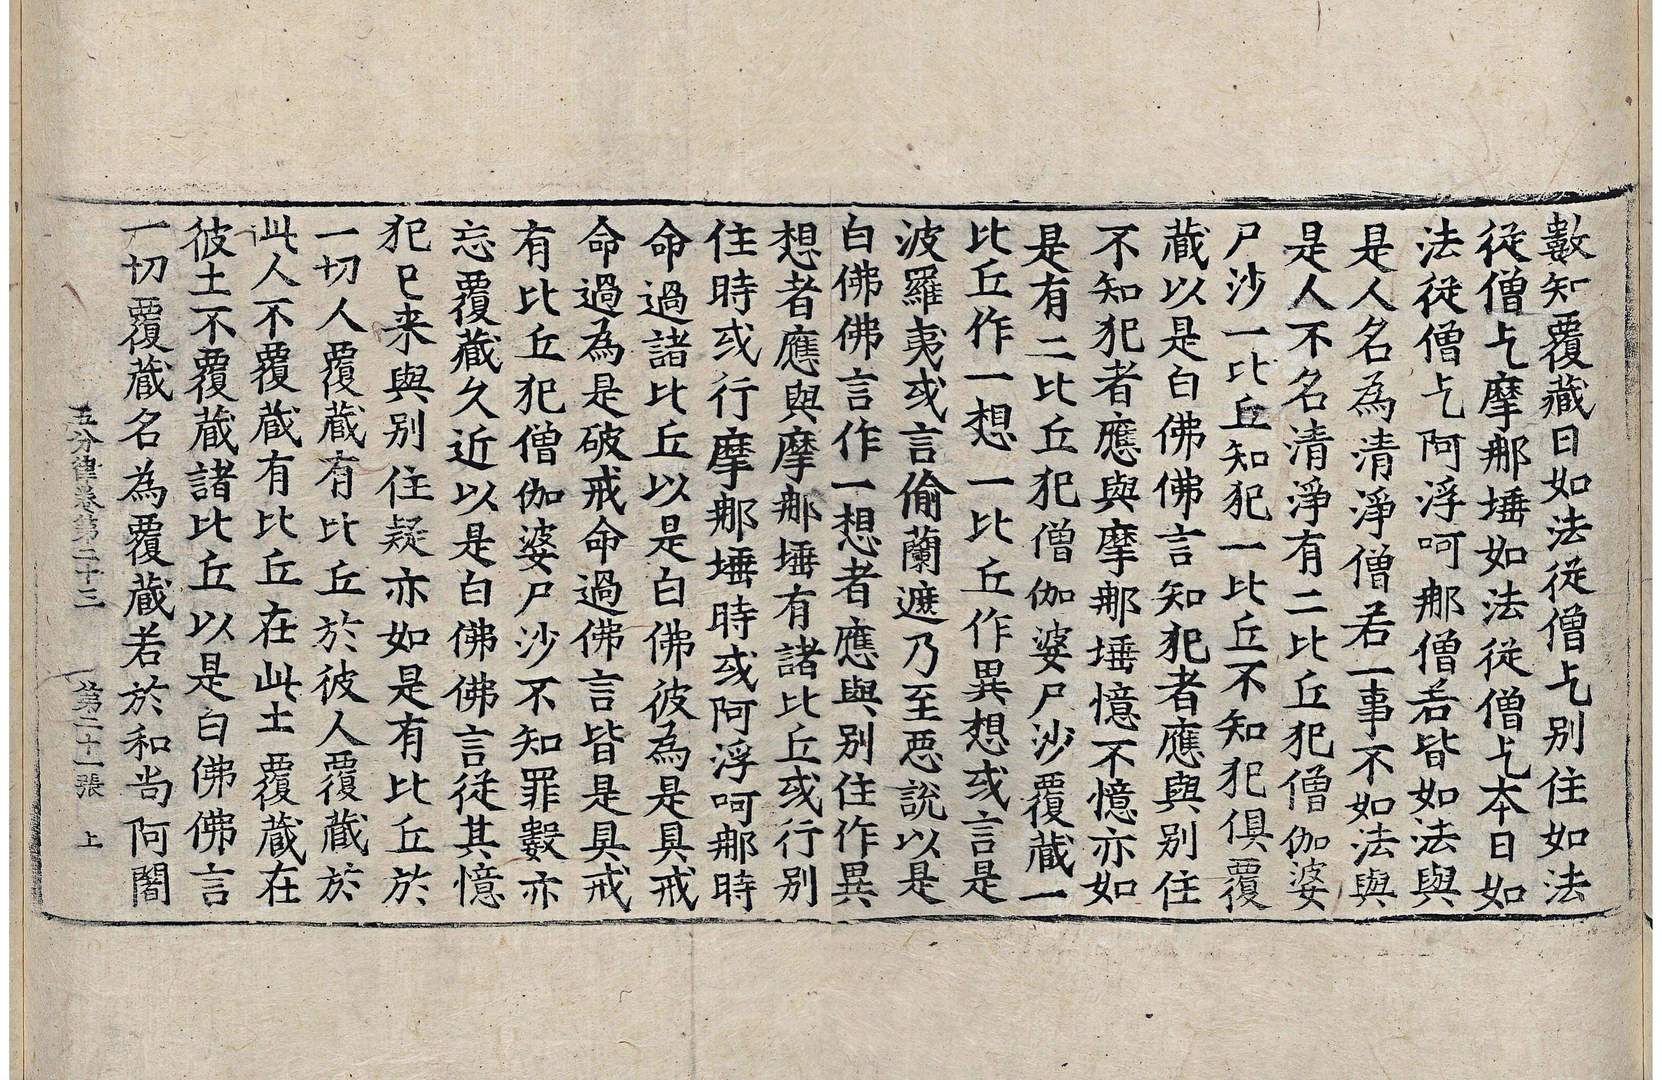 數知覆藏日如法從僧乞别住如法
從僧乞摩那埵如法從僧乞夲日如
法從僧乞阿浮呵那僧若皆如法與
是人名為清淨僧若一事不如法與
是人不名清淨有二比丘犯僧伽婆
尸沙一比丘知犯一比丘不知犯俱覆
藏以是白佛佛言知犯者應與别住
不知犯者應與摩那埵憶不憶亦如
是有二比丘犯僧伽婆尸沙覆藏一
比丘作一想一比丘作異想或言是
波羅夷或言偷蘭遮乃至惡說以是
白佛佛言作一想者應與别住作異
想者應與摩那埵有諸比丘或行别
住時或行摩那埵時或阿浮呵那時
命過諸比丘以是白佛彼為是具戒
命過為是破戒命過佛言皆是具戒
有比丘犯僧伽婆尸沙不知罪數亦
忘覆藏久近以是白佛佛言從其憶
犯已来與别住疑亦如是有比丘於
一切人覆藏有比丘於彼人覆藏於
此人不覆藏有比丘在此土覆藏在
彼土不覆藏諸比丘以是白佛佛言
一切覆藏名為覆藏若於和尚阿闍
五分律卷第二十三 第二十一張 上